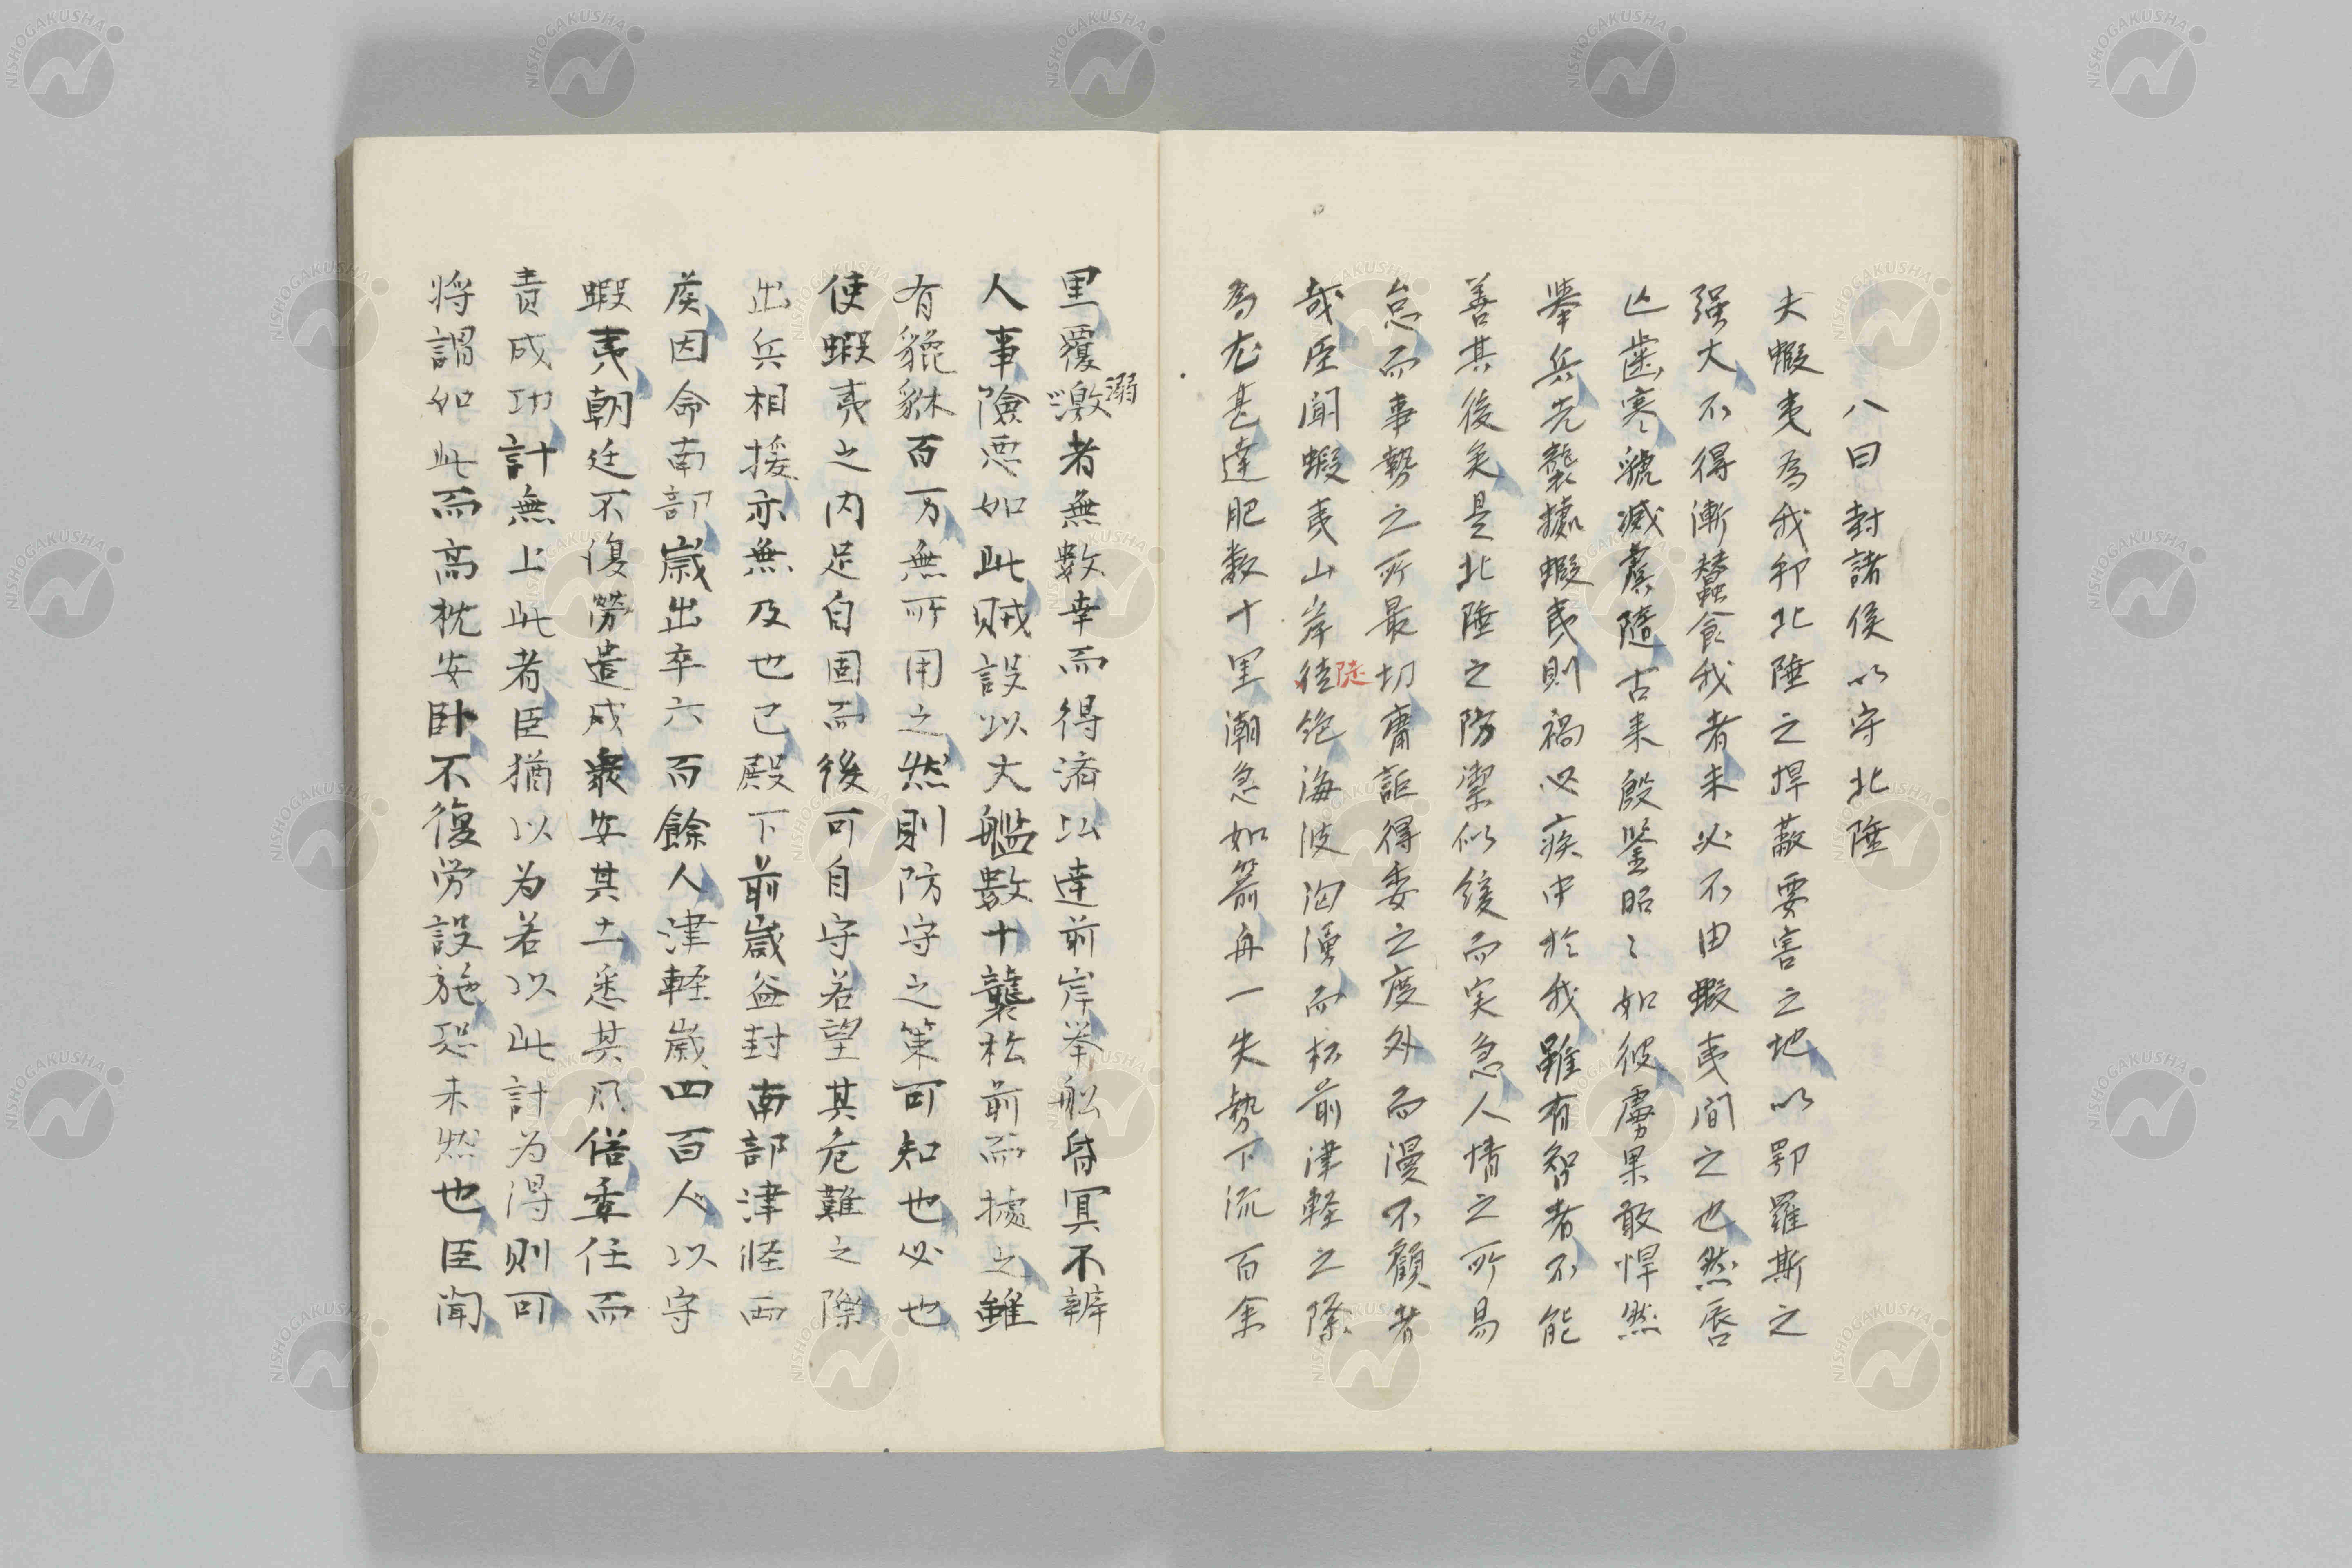 八曰封諸侯以守北陲
夫蝦夷為我邦北陲之捍蔽要害之地以鄂羅斯之
强大不得漸蠶食我者未必不由蝦夷間之也然唇
亡歯寒虢滅虞随古来殷鑒昭〻如彼虜果敢悍然
挙兵先襲據蝦夷則禍必疾中於我雖有智者不能
善其後矣是北陲之防禦似緩而実急人情之所易
怠而事勢之所最切庸詎得委之度外而漫不顧者
哉臣聞蝦夷山岸徒陡絶海波洶湧而松前津軽之際
為尤甚達肥数十里潮急如箭舟一失勢下流百余
里覆溺激者無數幸而得済以達前岸挙船昏冥不辨
人事險悪如此賊設以大艦數十襲松前而據之雖
有貔貅百万無所用之然則防守之策可知也必也
使蝦夷之内足自固而後可自守若望其危難之際
出兵相援亦無及也已殿下前歳益封南部津軽両
侯因命南部歳出卒六百餘人津軽歳四百人以守
蝦夷朝廷不復勞遣戍衆安其土悉其風俗委任而
責成功計無上此者臣猶以为若以此計为得則可
将謂如此而高枕安臥不復労設施恐未然也臣聞
NISHOGAKUSHA